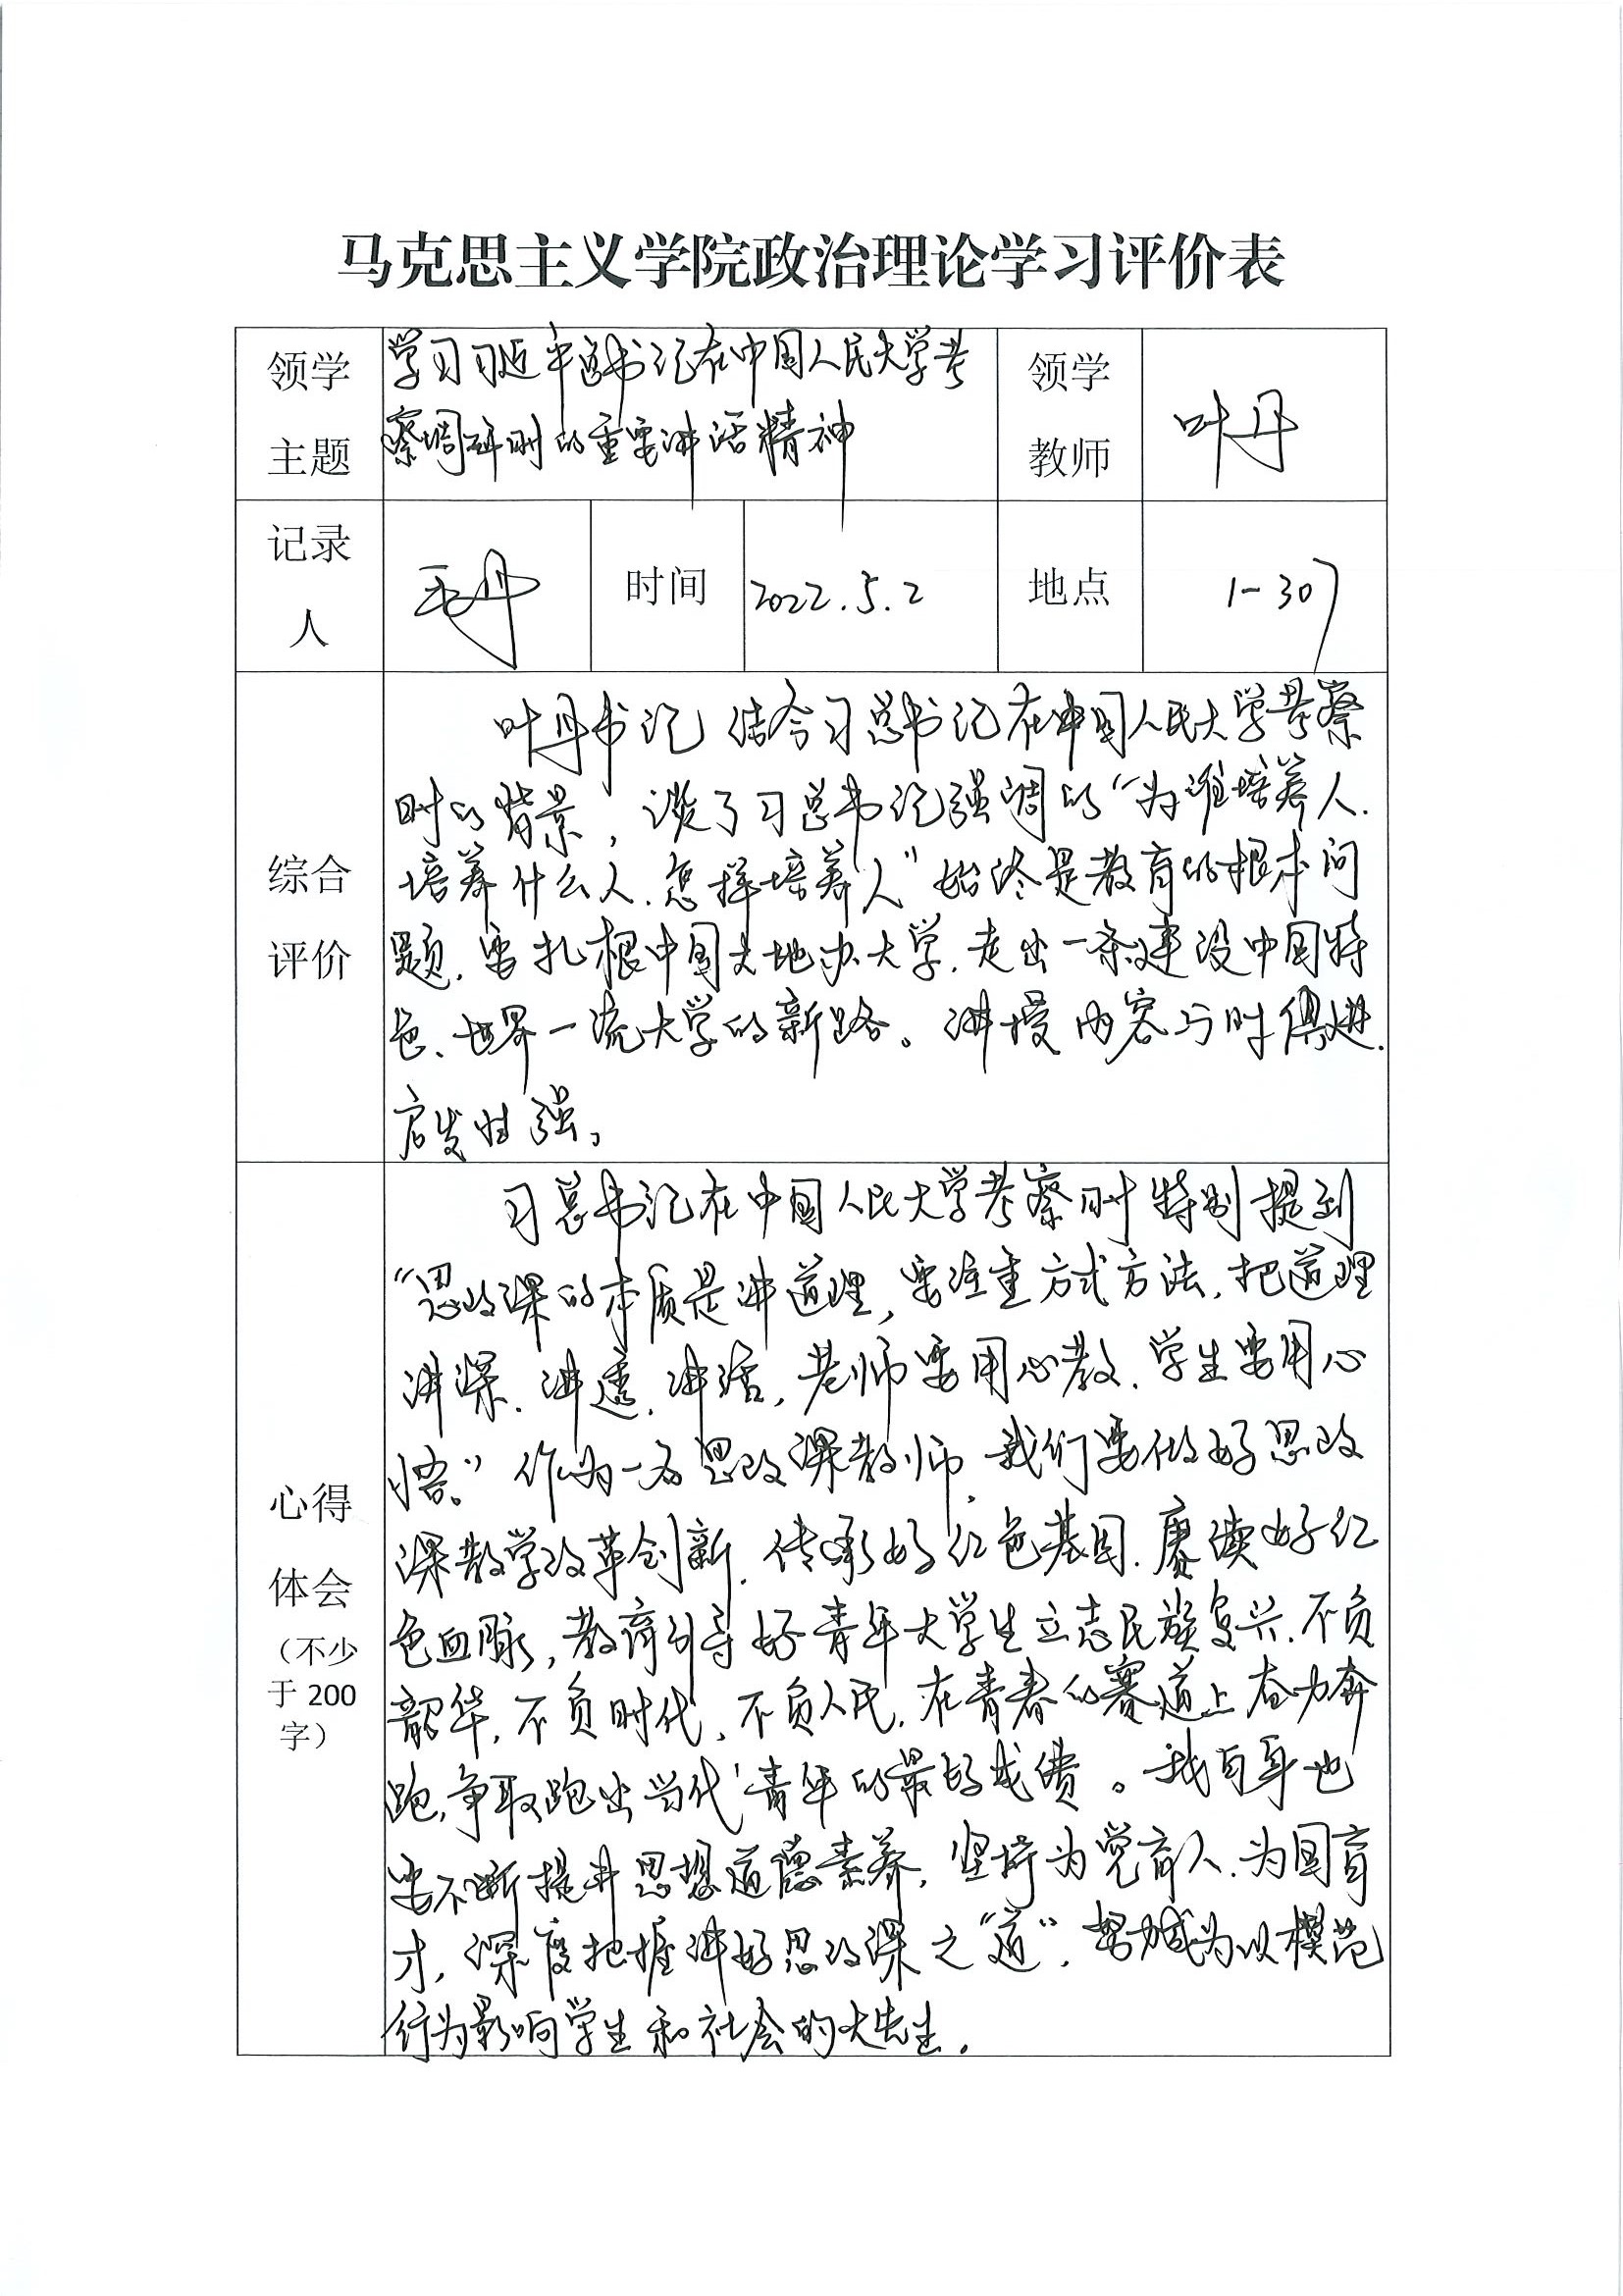 马克思主义学院政治理论学习评价表
领学
主题
学习习近平总书记在中国人民大学考
察调研时的重要讲话精神
领学
教师
叶丹
记录
人
毛丹
时间
2022.5.2
地点
1-307
综合
评价
叶丹书记结合习总书记在中国人民大学考察
时的背景，谈了习总书记强调的“为谁培养人、
培养什么人、怎样培养人”始终是教育的根本问
题，要扎根中国大地办大学，走出一条建设中国特
色、世界一流大学的新路。讲授内容与时俱进，
启发性强。
心得
体会
（不少
于 200
字）
习总书记在中国人民大学考察时特别提到
“思政课的本质是讲道理，要注重方式方法，把道理
讲深、讲透、讲活，老师要用心教，学生要用心
悟。”作为一名思政课教师，我们要做好思政
课教学改革创新，传承好红色基因，赓续好红
色血脉，教育引导好青年大学生立志民族复兴，不负
韶华，不负时代，不负人民，在青春的赛道上奋力奔
跑，争取跑出当代青年的最好成绩。我自身也
要不断提升思想道德素养，坚持为党育人、为国育
才，深度把握讲好思政课之“道”，努力成为以模范
行为影响学生和社会的大先生。